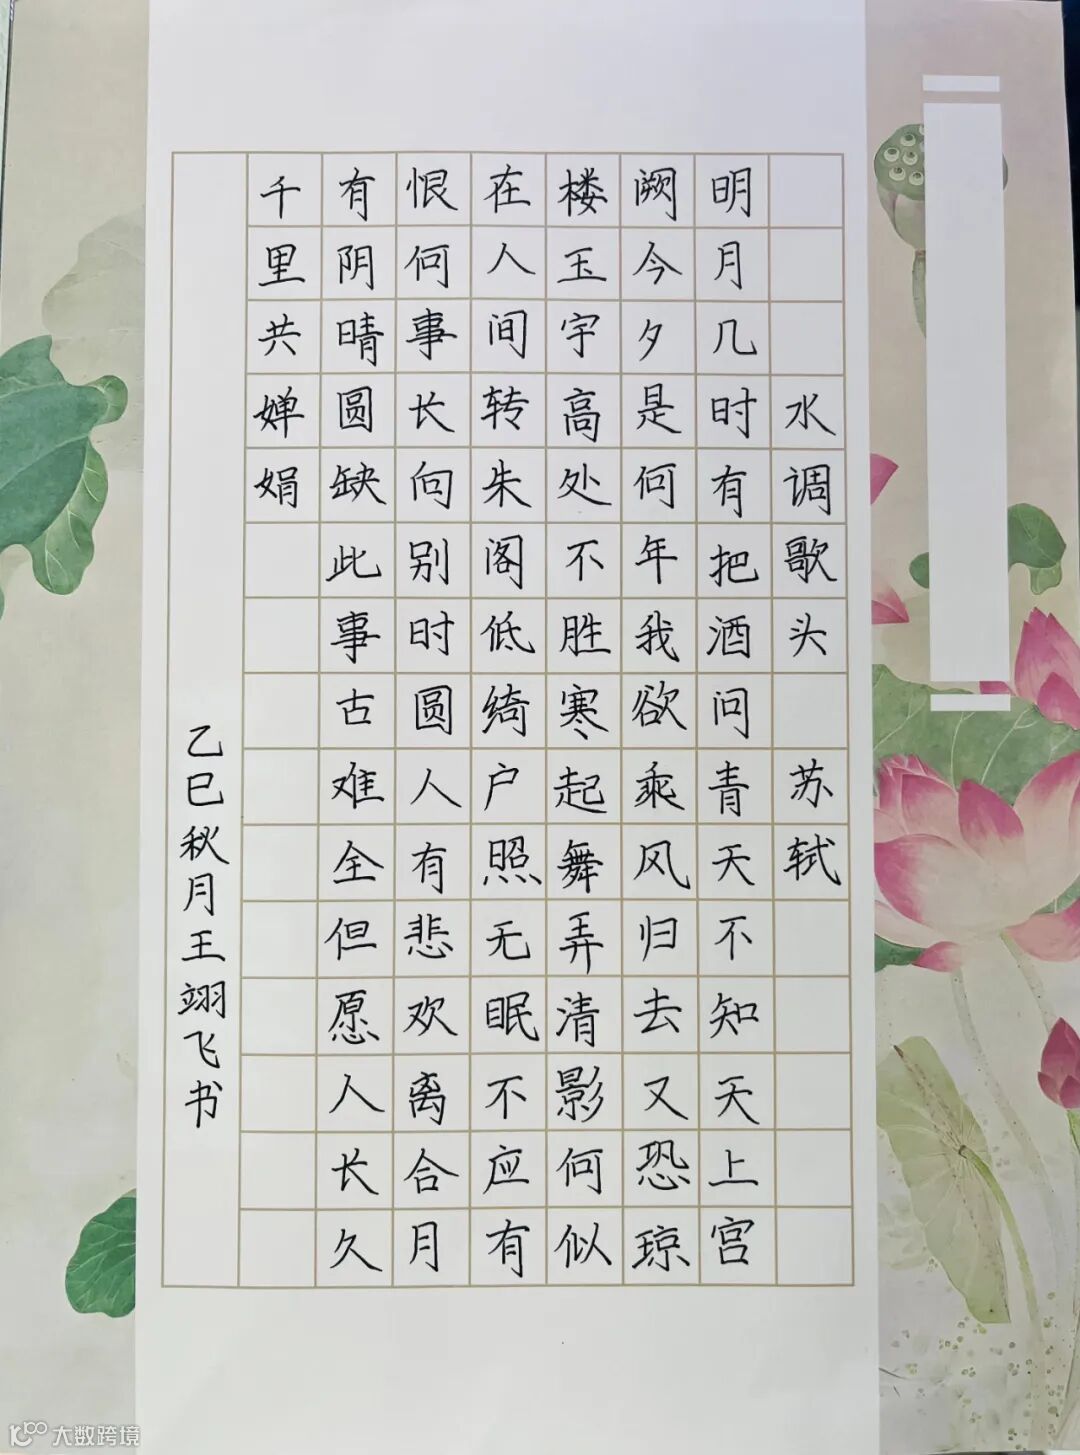 水调歌头 苏轼
明月几时有把酒问青天不知天上宫
阙今夕是何年我欲乘风归去又恐琼
楼玉宇高处不胜寒起舞弄清影何似
在人间转朱阁低绮户照无眠不应有
恨何事长向别时圆人有悲欢离合月
有阴晴圆缺此事古难全但愿人长久
千里共婵娟
乙巳秋月王翊飞书
大数跨境